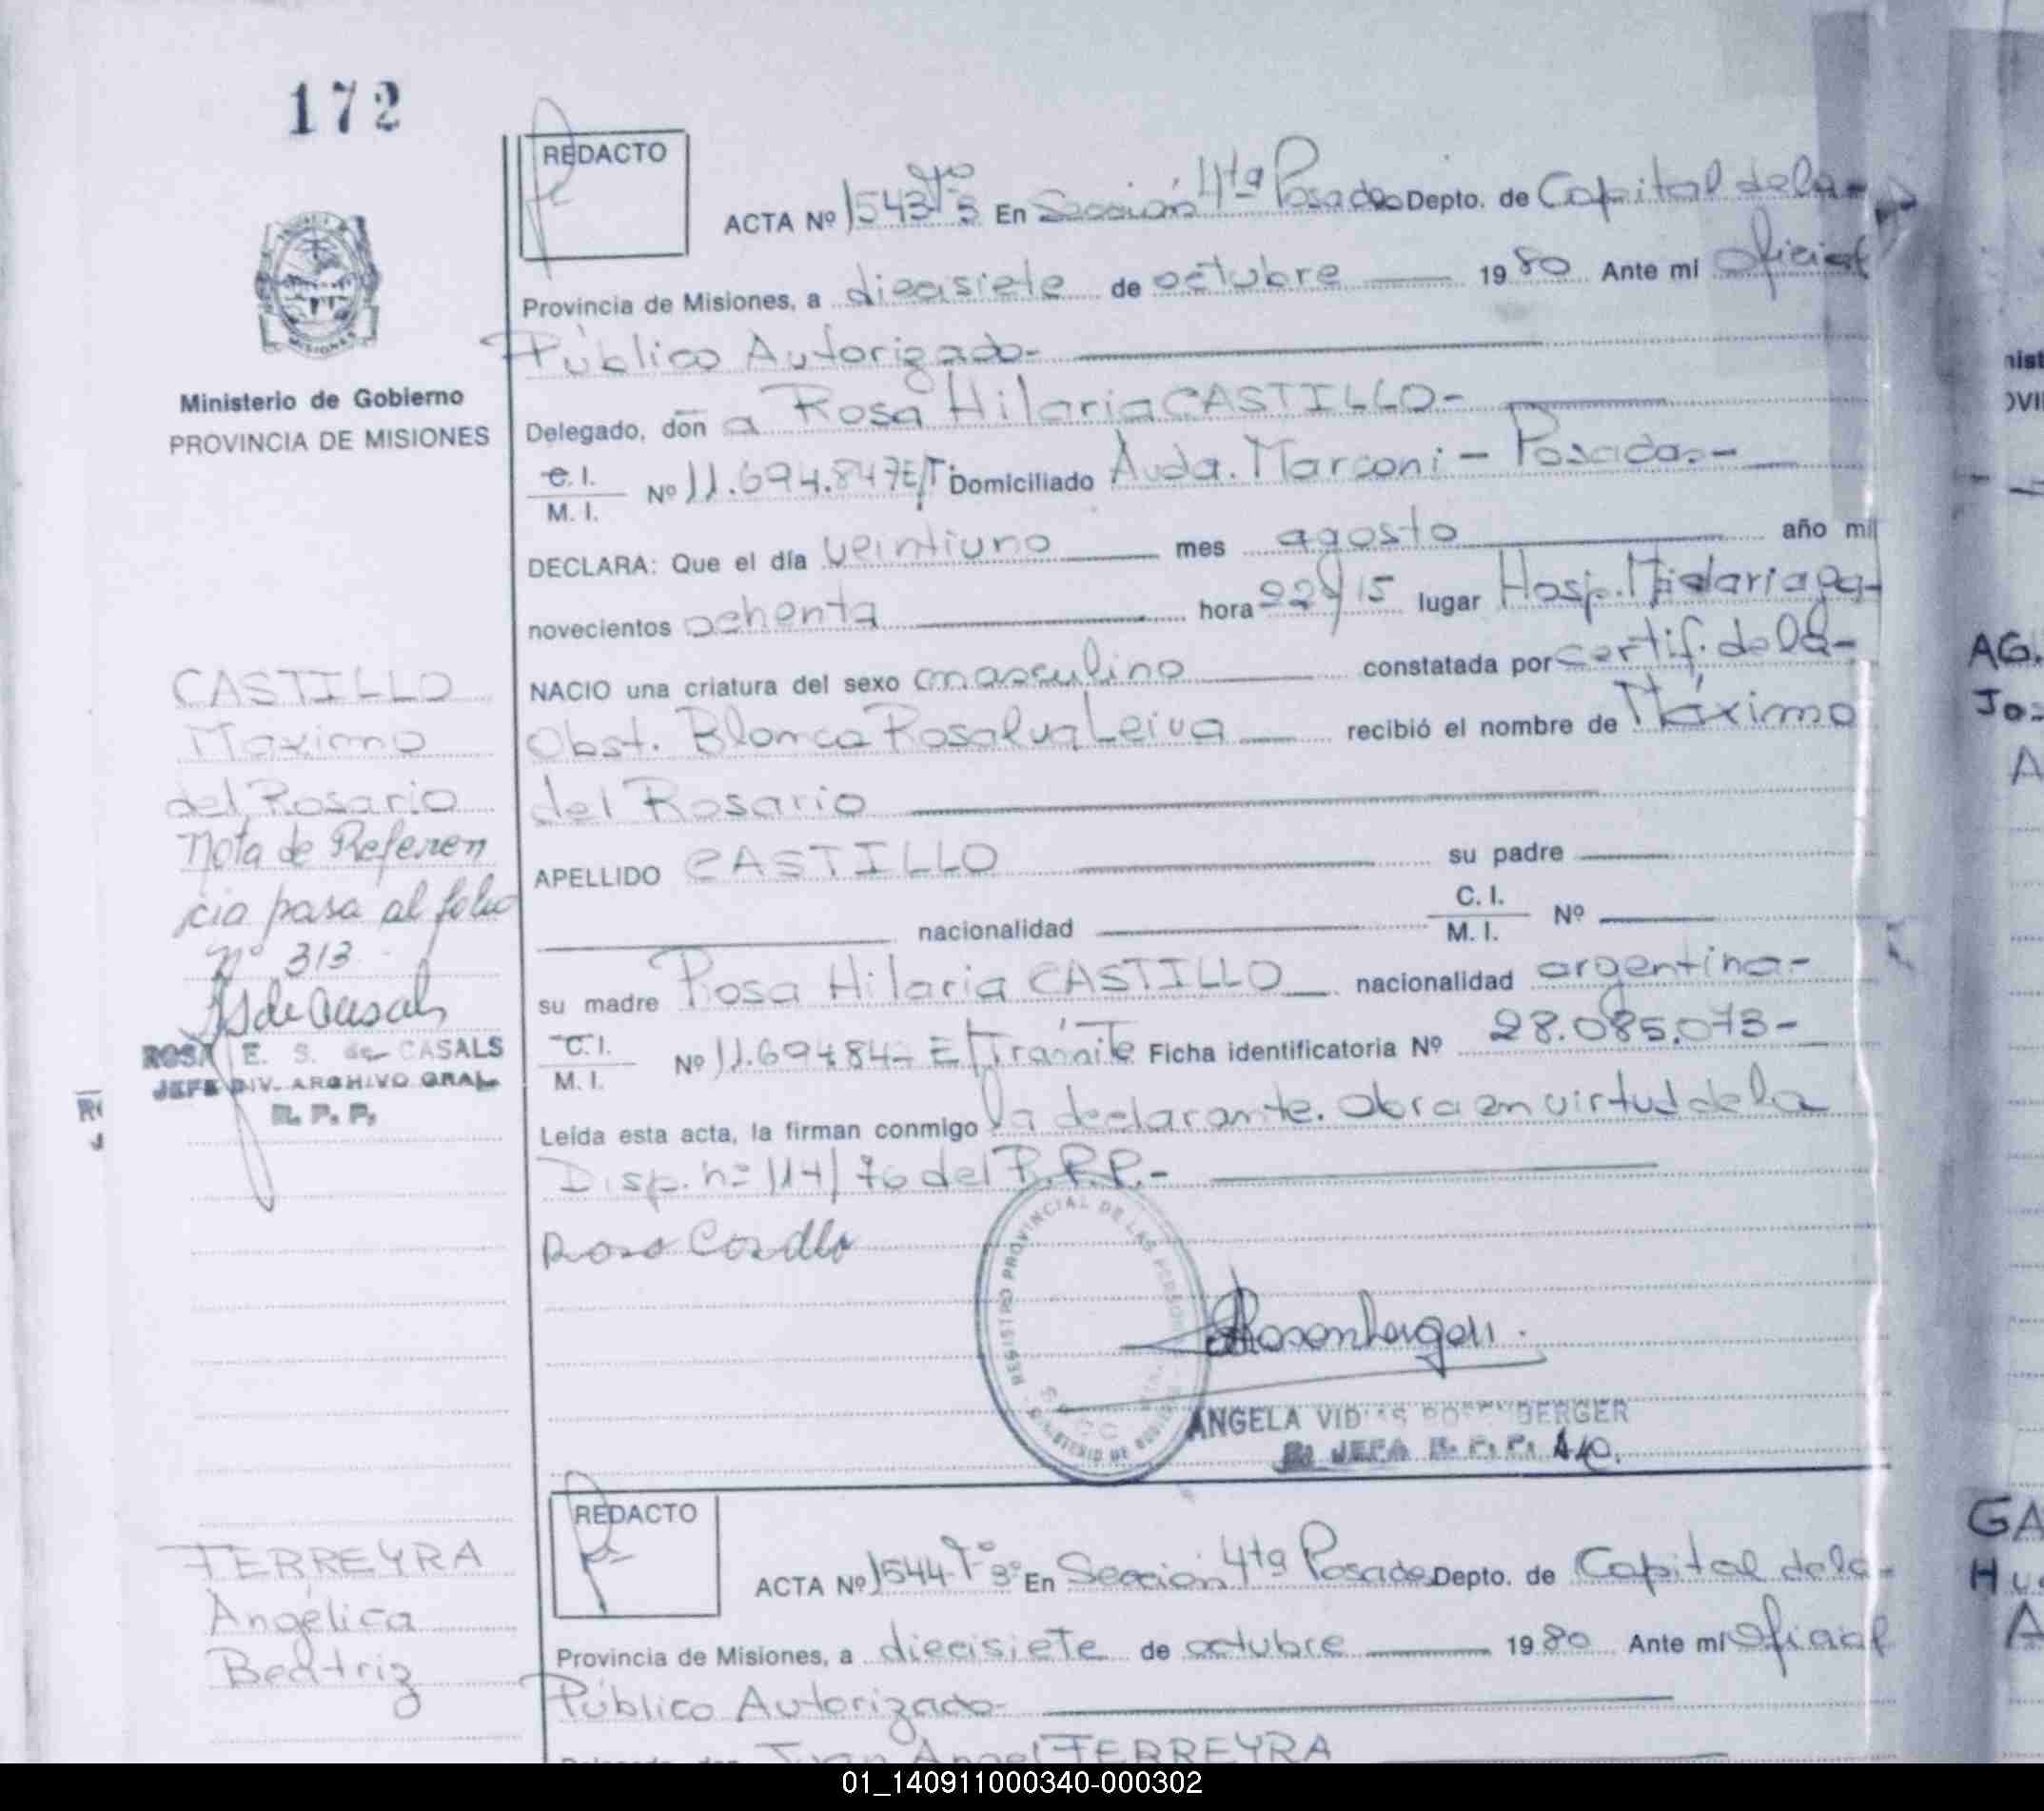 172
REDACTO
ACTA Nº 1543 Tº 3 En Sección 4ta Posadas Depto. de Capital de la-
Provincia de Misiones, a diecisiete de octubre 1980 Ante mí Oficial
Público Autorizado-
Delegado, don a Rosa Hilaria CASTILLO-
C. I.
M. I.
Nº 11.694.847 E/T Domiciliado Avda. Marconi - Posadas-
DECLARA: Que el día veintiuno mes agosto año mil
novecientos ochenta hora 22 y 15 lugar Hosp. Madariaga-
NACIO una criatura del sexo masculino constatada por certif. de la-
Obst. Blanca Rosalva Leiva recibió el nombre de Máximo
del Rosario
APELLIDO CASTILLO su padre
nacionalidad C. I.
M. I. Nº
su madre Rosa Hilaria CASTILLO nacionalidad argentina-
C. I.
M. I.
Nº 11.694.847 E/Trámite Ficha identificatoria Nº 28.085.073-
Leída esta acta, la firman conmigo la declarante. Obra en virtud de la
Disp. nº 114/76 del R.P.P.-
REGISTRO PROVINCIAL DE LAS PERSONAS
ANGELA
JEFA R. P. P. A/C.
Ministerio de Gobierno
PROVINCIA DE MISIONES
MISIONES
CASTILLO
Máximo
del Rosario
Nota de Referen
cia pasa al folio
nº 313
ROSA E. S. de CASALS
JEFE DIV. ARCHIVO GRAL
R. P. P.
REDACTO
ACTA Nº 1544 Tº 3º En Sección 4ta Posadas Depto. de Capital de la-
Provincia de Misiones, a diecisiete de octubre 1980 Ante mí Oficial
Público Autorizado-
Juan Angel FERREYRA
FERREYRA
Angélica
Beatriz
AG.
Jo-
A
GA
Hu
A
01_140911000340-000302